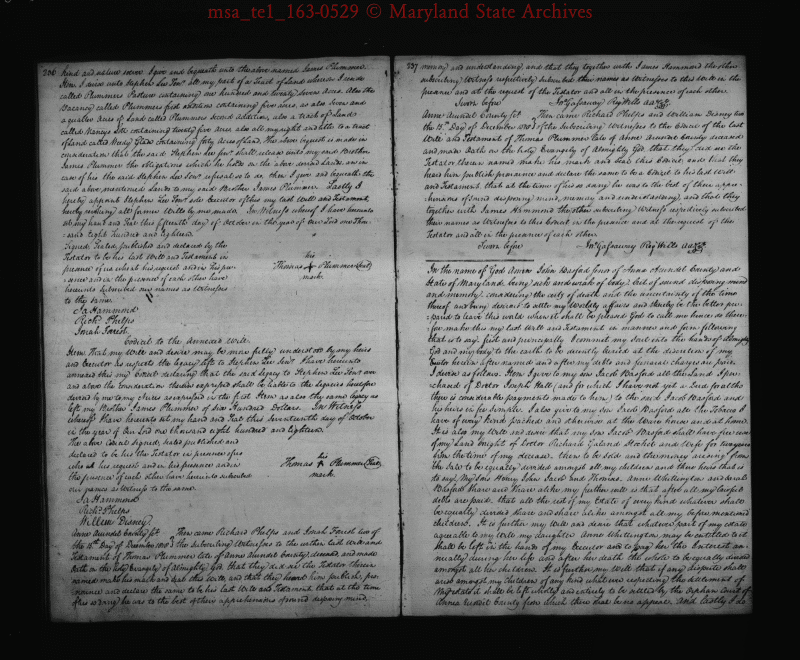 msa_te1_163-0529 © Maryland State Archives
236
kind and nature soever I give and bequeath unto the above named James Plummer
Item I give unto Stephen Lee Senr all my part of a Tract of Land whereon I reside
called Plummers Pasture containing one hundred and twenty seven acres Also the
Vacancy called Plummers first addition containing five acres, as also seven and
a quarter acres of Land called Plummers second addition, also a tract of Land
called Nancys Lott containing twenty five acres also all my right and title to a tract
of Land called Glade containing forty acres of Land. The above bequest is made in
consideration that the said Stephen Lee Senr shall release unto my said Brother
James Plummer the obligations which he holds on the above several Lands, or in
case of his the said Stephen Lee Senr refusal so to do then I give and bequeath the
said above mentioned Lands to my said Brother James Plummer. Lastly I
hereby appoint Stephen Lee Senr sole executor of this my last Will and Testament,
hereby revoking all former Wills by me made. In Witness whereof I have hereunto
set my hand and Seal this fifteenth day of October in the year of our Lord one Thou-
-sand eight hundred and eighteen
Signed, Sealed, published and declared by the
Testator to be his last Will and Testament in
presence of us who at his request and in his pres-
ence and in the presence of each other have
hereunto subscribed our names as Witnesses
to the same
his
Thomas + Plummer (Seal)
mark
Ja Hammond
Richd Phelps
Jonah Forest
Codicil to the annexed Will
Item that my Will and desire may be more fully understood by my heirs
and executor as respects the Legacy left to Stephen Lee Senr I have hereunto
annexed this my Codicil declaring that the said Legacy to Stephen Lee Senr over
and above the consideration therein expressed shall be liable to the Legacies
devised by me to my Nieces as expressed in the first Item as also the same legacy as
left my Brother James Plummer of Six Hundred Dollars. In Witness
whereof I have hereunto set my hand and Seal this seventeenth day of October
in the year of Our Lord one thousand eight hundred and eighteen
The above Codicil signed, sealed published and
declared to be his the Testator in presence of us
who at his request and in his presence and in
the presence of each other have hereunto subscribed
our names as Witnesses to the same
his
Thomas + Plummer (Seal)
mark
Ja Hammond
Richd Phelps
William Disney
Anne Arundel County Sct Then came Richard Phelps and Jonah Forest two of
the 15th Day of December 1818 the subscribing Witnesses to the within last Will and
Testament of Thomas Plummer late of Anne Arundel County deceased and made
Oath on the Holy Evangely of Almighty God that they did see the Testator therein
named make his mark and seal this Will, and that they heard him publish, pro-
nounce and declare the same to be his last Will and Testament that at the time
of his so doing he was to the best of their apprehensions of sound disposing mind,
237
memory and understanding, and that they together with James Hammond the other
subscribing Witness respectively subscribed their names as Witnesses to this Will in the
presence and at the request of the Testator and all in the presence of each other
Sworn before Jno Gassaway Reg Wills AACty
Anne Arundel County Sct Then came Richard Phelps and William Disney two
the 15th Day of December 1818 of the subscribing Witnesses to the Codicil of the last
Will and Testament of Thomas Plummer late of Anne Arundel County deceased
and made Oath on the Holy Evangely of Almighty God that they did see the
Testator therein named make his mark and seal this Codicil and that they
heard him publish pronounce and declare the same to be a Codicil to his last Will
and Testament that at the time of his so doing he was to the best of their appre-
-hensions of sound disposing mind, memory and understanding, and that they
together with James Hammond the other subscribing Witness respectively subscribed
their names as Witnesses to this Codicil in the presence and at the request of the
Testator and all in the presence of each other
Sworn before Jno Gassaway Reg Wills AACty
In the name of God Amen John Basford Senr of Anne Arundel County and
State of Maryland, being sick and weak of body, but of sound disposing mind
and memory, considering the certainty of death and the uncertainty of the time
thereof and being desirous to settle my Worldly affairs and thereby be the better pre-
pared to leave this world when it shall be pleased God to call me hence do there-
fore make this my last Will and Testament in manner and form following
that is to say. first and principally I commit my Soul into the hands of Almighty
God and my body to the earth to be decently buried at the discretion of my
executor herein after named and after my debts and funeral charges are paid.
I devise as follows. Item I give to my son Jacob Basford all the Land I pur-
chased of Doctor Joseph Hall (and for which I have not yet a Deed for altho
there is considerable payments made to him) to the said Jacob Basford and
his heirs in fee simple. I also give to my son Jacob Basford all the Tobacco I
have of every kind packed and otherwise at the Ware house or at home.
It is also my Will and desire that my son Jacob Basford shall have free use
of my Land bought of Doctor Richard Galand Hockel and Wife for two years
from the time of my decease, then to be sold and the money arising from
the sale to be equally divided amongst all my children and their heirs that is
to say, My Sons Henry John Jacob and Thomas, Anne Whittington and Sarah
Basford share and share alike, my further will is that after all my lawful
debts are paid, that all the rest of my Estate of every kind whatever shall
be equally divided share and share alike amongst all my before mentioned
children. It is further my Will and desire that whatever part of my estate
agreeable to my Will my daughter Anne Whittington may be entitled to it
shall be left in the hands of my Executor and to pay her the Interest an-
nually during her life and after her death the whole to be equally divided
amongst all her children. It is further my Will that if any dispute shall
arise amongst my children of any kind whatever respecting the settlement of
my estate it shall be left wholly and entirely to be settled by the Orphans Court of
Anne Arundel County from which there shall be no appeal, and lastly I do